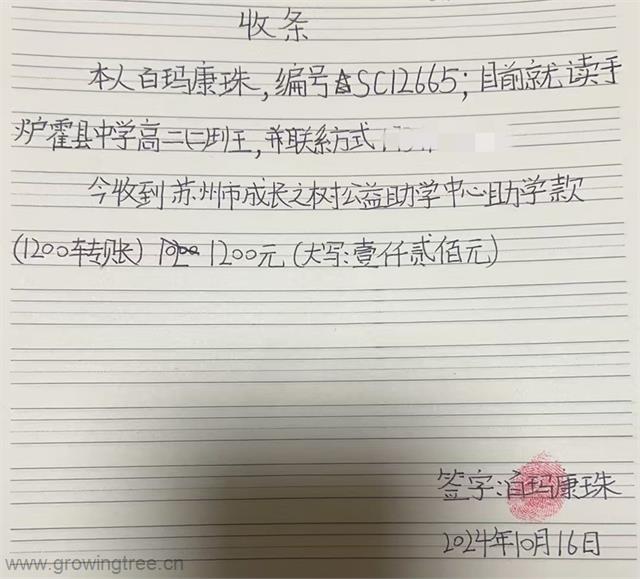 收条
本人白玛康珠,编号SC12665;目前就读于
炉霍县中学高二(三)班,并联系方式
今收到苏州市成长之树公益助学中心助学款
(1200转账) 1200元(大写:壹仟贰佰元)
签字:白玛康珠
2024年10月16日
www.growingtree.cn